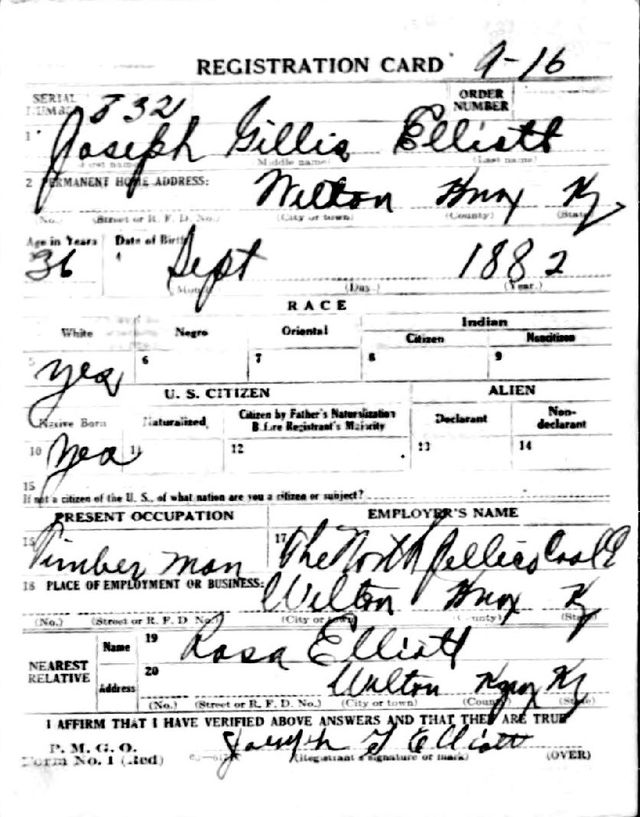 REGISTRATION CARD 9-16
SERIAL NUMBER 532 ORDER NUMBER
1 Joseph Gillis Elliott
(First name) (Middle name) (Last name)
2 PERMANENT HOME ADDRESS: Wilton Knox Ky
(No.) (Street or R. F. D. No.) (City or town) (County) (State)
Age in Years Date of Birth
36 4 Sept 1882
(Month.) (Day.) (Year.)
RACE
White Negro Oriental Indian
Citizen Noncitizen
5 yes 6 7 8 9
U. S. CITIZEN ALIEN
Native Born Naturalized Citizen by Father's Naturalization Before Registrant's Majority Declarant Non-declarant
10 yes 11 12 13 14
15
If not a citizen of the U. S., of what nation are you a citizen or subject?
PRESENT OCCUPATION EMPLOYER'S NAME
16 Timber man 17 The North Jellico Coal C
18 PLACE OF EMPLOYMENT OR BUSINESS: Wilton Knox Ky
(No.) (Street or R. F. D. No.) (City or town) (County) (State)
NEAREST RELATIVE Name 19 Rosa Elliott
Address 20 Wilton Knox Ky
(No.) (Street or R. F. D. No.) (City or town) (County) (State)
I AFFIRM THAT I HAVE VERIFIED ABOVE ANSWERS AND THAT THEY ARE TRUE
P. M. G. O.
Form No. 1 (Red) Joseph G Elliott
(Registrant's signature or mark) (OVER)